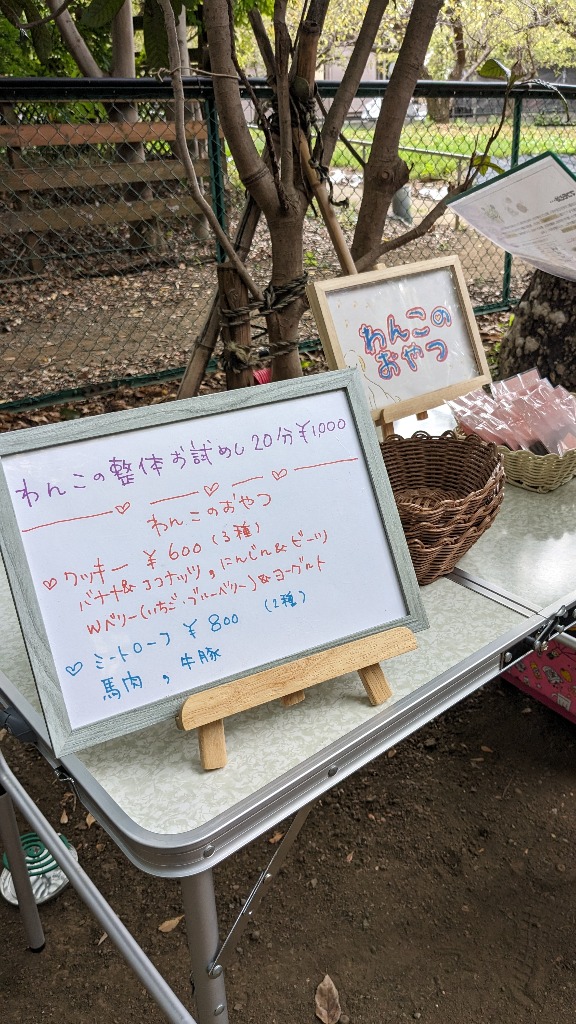 わんこの整体お試し20分¥1,000
わんこのおやつ
♡クッキー ¥600(3種)
バナナ&ココナッツ,にんじん&ビーツ
Wベリー(いちご・ブルーベリー)&ヨーグルト
♡ミートローフ ¥800 (2種)
馬肉,牛豚
わんこの
おやつ